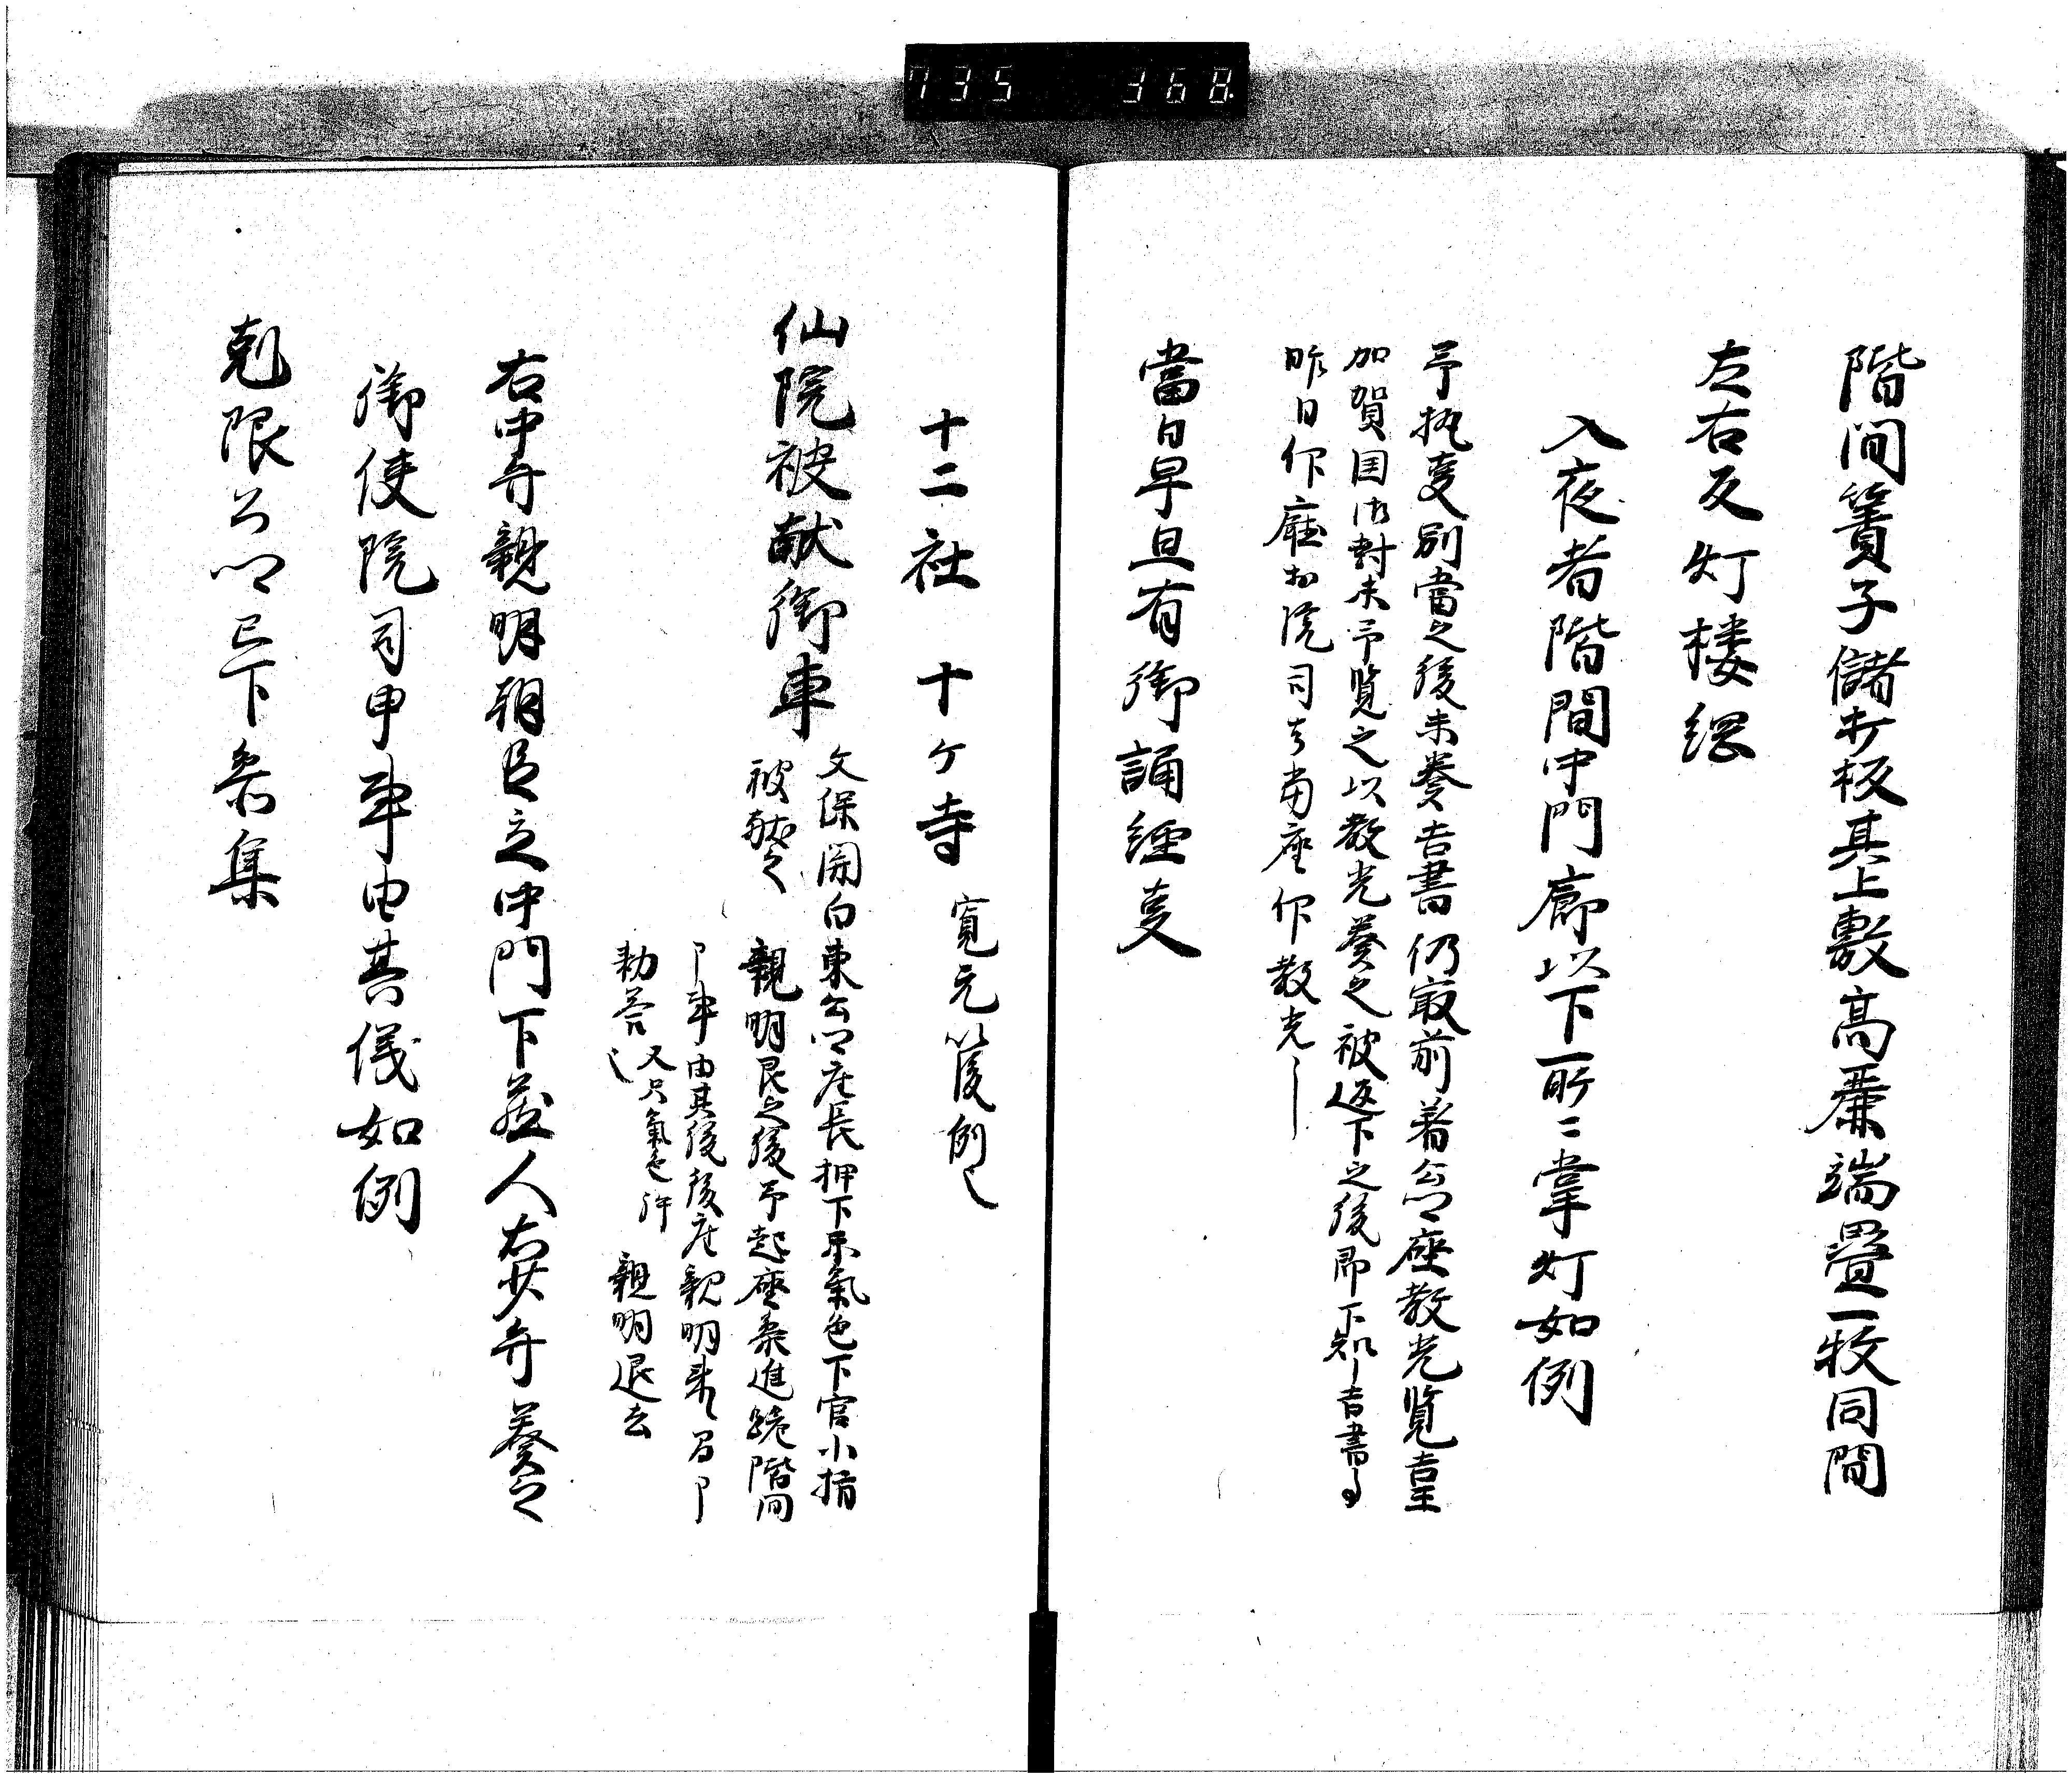 735 368
階間簀子儲打板其上敷高麗端畳一枚同間
左右反灯楼綱
入夜者階間中門廊以下所々掌灯如例
予執事別當之後未奏吉書仍最前著公卿座教光覧吉書
加賀国御封末予覧之以教光奏之被返下之後即下知吉書
昨日仰庁 院司 当座仰教光
當日早旦有御誦経事
十二社 十ケ寺 寛元以後例也
仙院被献御車 文保関白束公卿座長押下気色下官小揖
被献之 親明 之後予起座参進跪階間
申事由其後復座親明来召仰
勅答 又只気色許 親明退去
右中弁親明朝臣立中門下蔵人右少弁 奏之
御使院司申事由其儀如例
剋限公卿已下参集